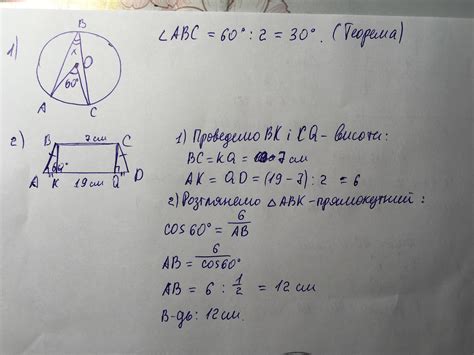 1)
B
x
O
60°
A
C
∠ABC = 60° : 2 = 30°. (Теорема)
2)
B 7 см C
60°
A K 19 см Q D
1) Проведемо BK і CQ - висоти:
BC = KQ = 7 см
AK = QD = (19 - 7) : 2 = 6
2) Розглянемо △ABK - прямокутний :
cos 60° = 6/AB
AB = 6/cos60°
AB = 6 : 1/2 = 12 см
В-дь: 12 см.